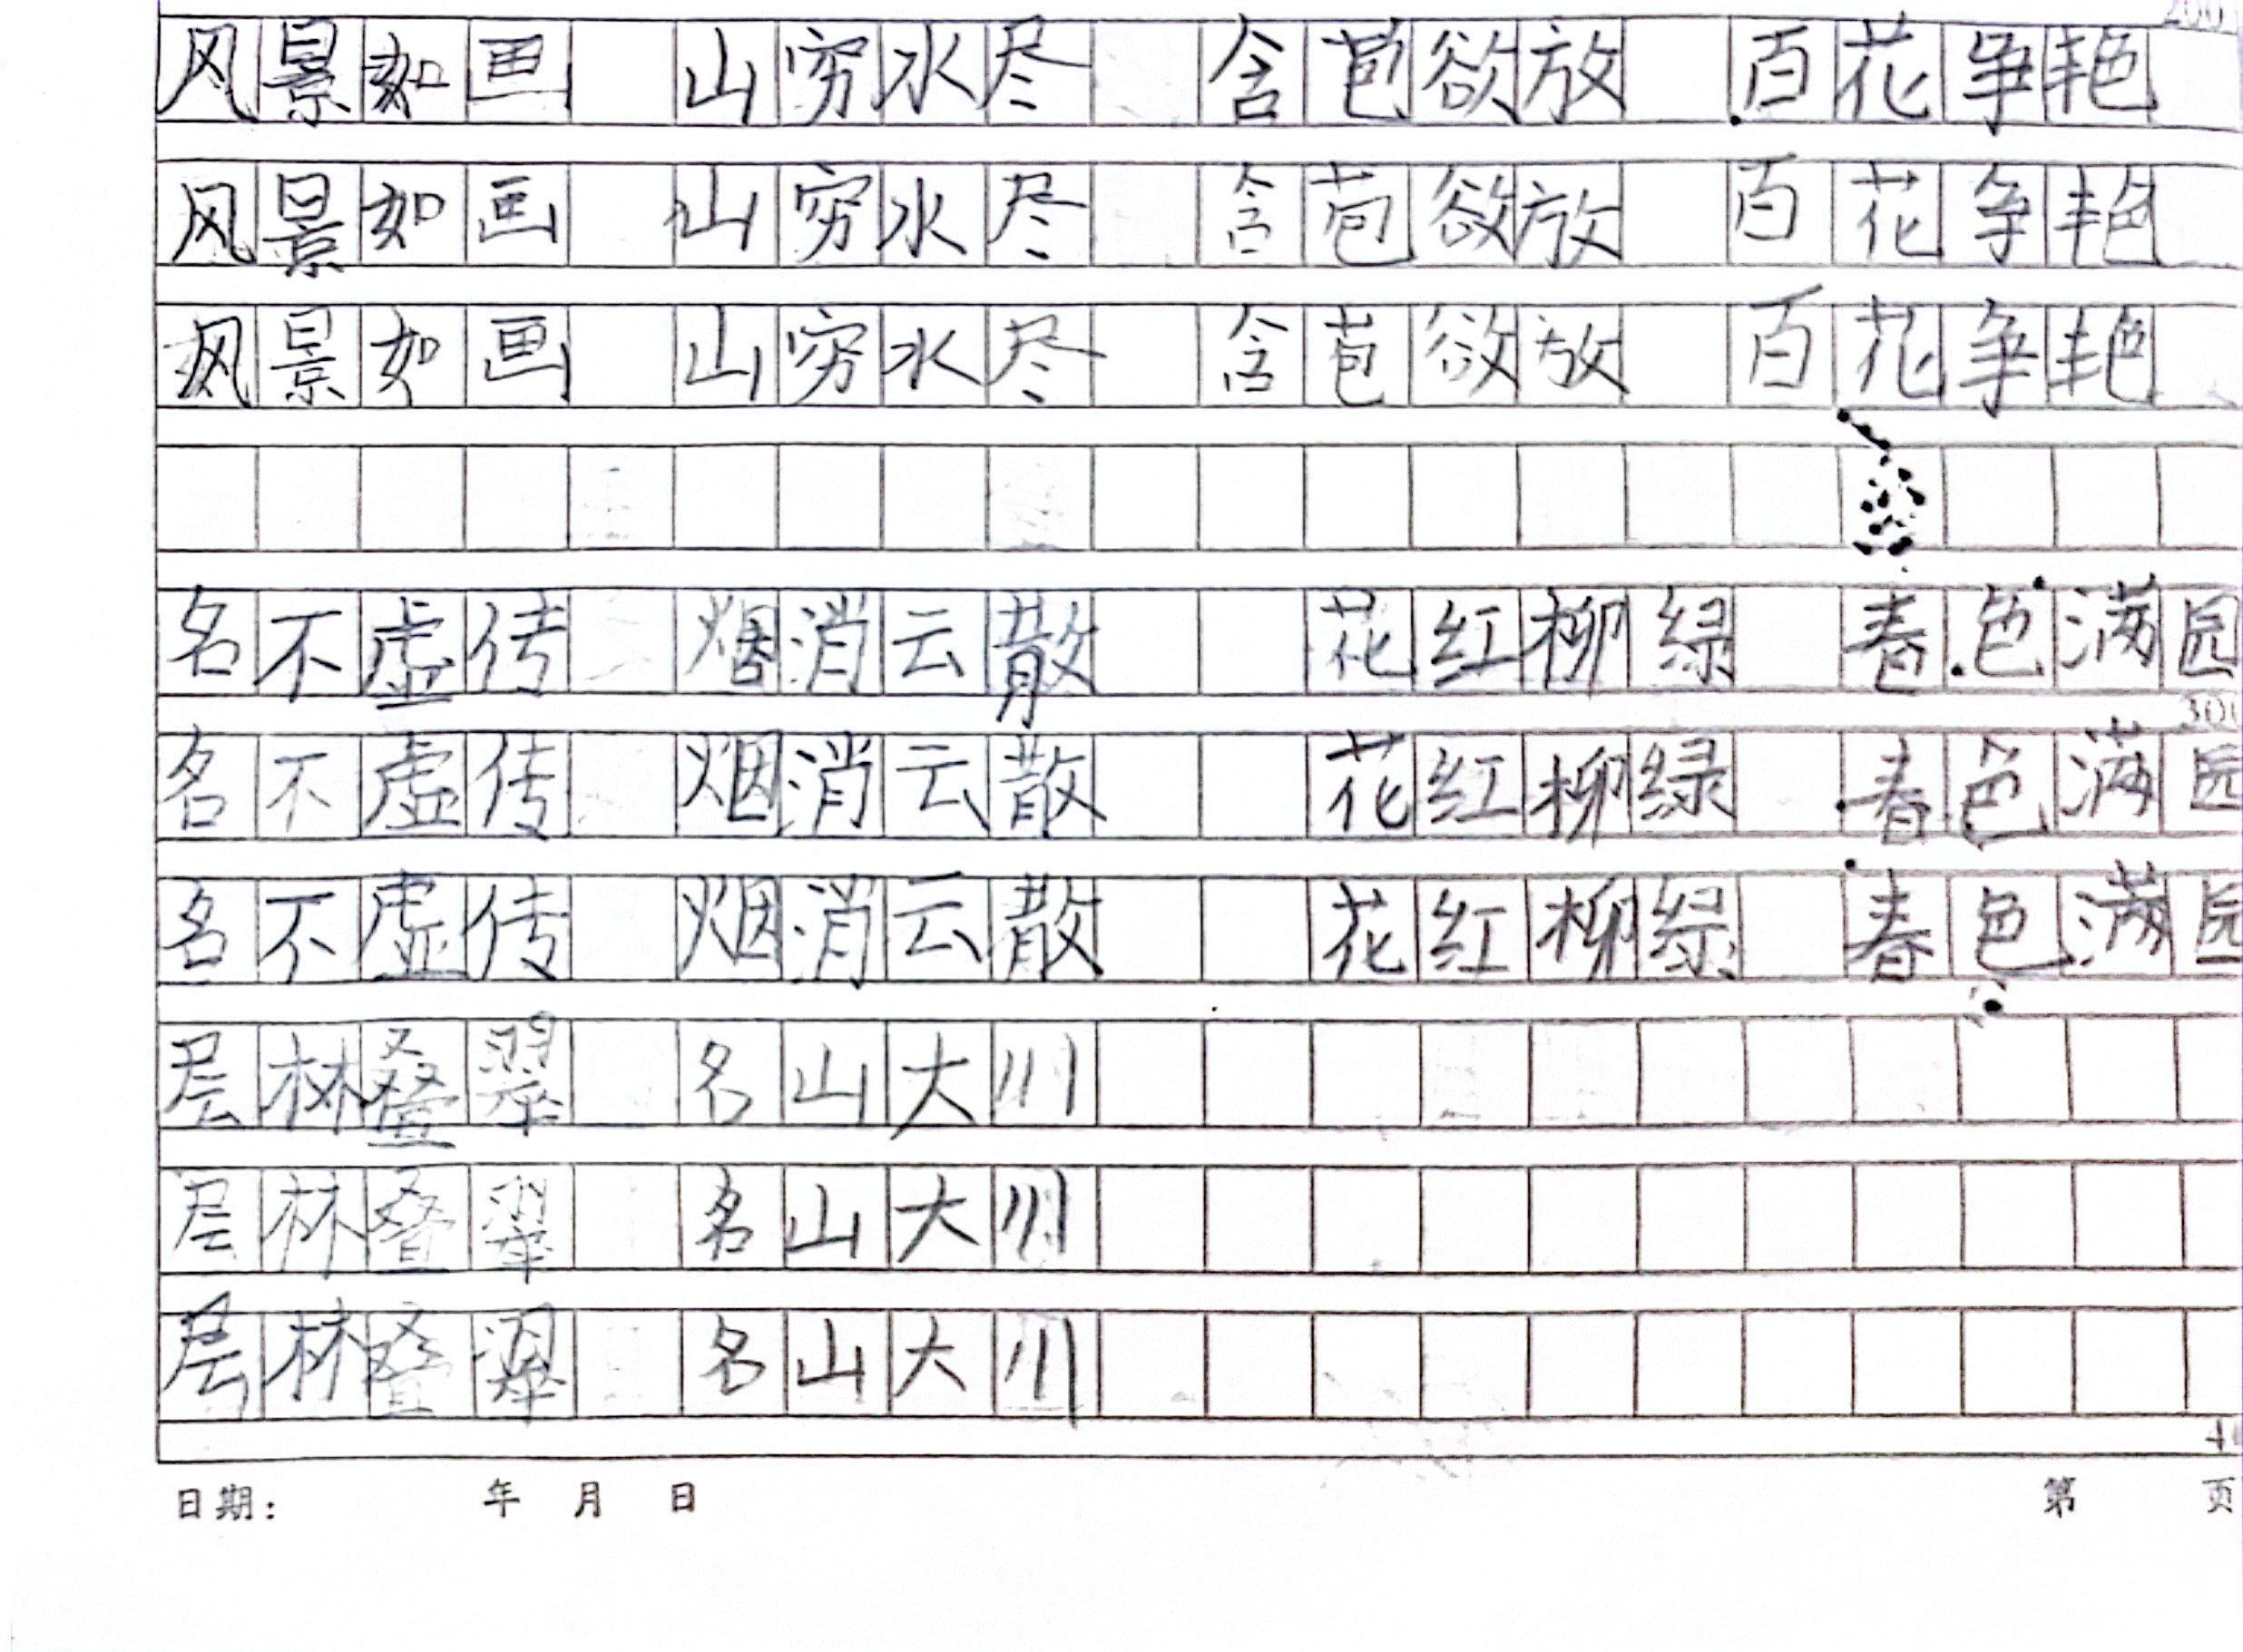 200
风景如画 山穷水尽 含苞欲放 百花争艳
风景如画 山穷水尽 含苞欲放 百花争艳
风景如画 山穷水尽 含苞欲放 百花争艳
名不虚传 烟消云散 花红柳绿 春色满园
300
名不虚传 烟消云散 花红柳绿 春色满园
名不虚传 烟消云散 花红柳绿 春色满园
层林叠翠 名山大川
层林叠翠 名山大川
层林叠翠 名山大川
日期： 年 月 日 第 页